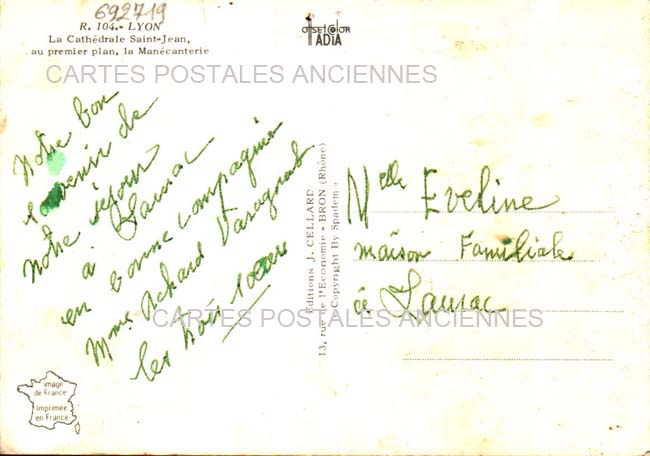 692719
R. 104.- LYON
La Cathédrale Saint-Jean,
au premier plan, la Manécanterie
OFFSETCOLOR
IADIA
CARTES POSTALES ANCIENNES
Notre bon
souvenir de
notre séjour
à Saurac
en bonne compagnie
Mme Achard Varagnat
les trois soeurs
Éditions J. CELLARD
13, rue de l'Economie - BRON (Rhône)
Copyright By Spadem »
Nelle Eveline
maison Familiale
à Saurac
CARTES POSTALES ANCIENNES
image
de France
Imprimée
en France